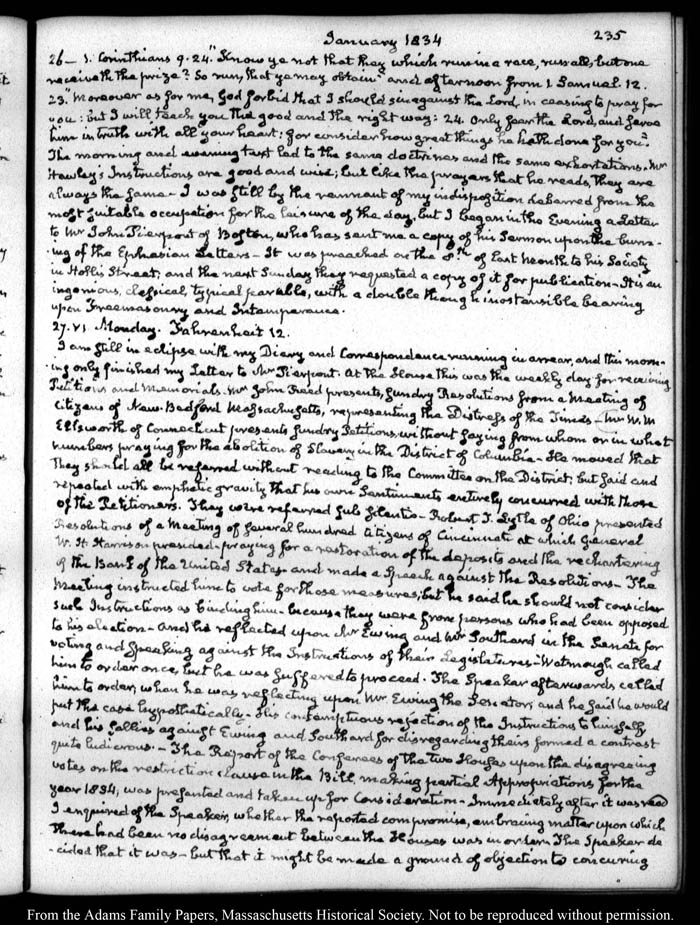 January 1834 235
26 – 1. Corinthians 9. 24. "Know ye not that they which run in a race, run all, but one
receiveth the prize? So run, that ye may obtain" and afternoon from 1 Samuel. 12.
23. "Moreover as for me, God forbid that I should sin against the Lord, in ceasing to pray for
you: but I will teach you the good and the right way: 24. Only fear the Lord, and serve
him in truth with all your heart: for consider how great things he hath done for you."
The morning and evening text led to the same doctrines and the same exhortations. Mr
Hawley's Instructions are good and wise; but like the prayers that he reads, they are
always the same – I was still by the remnant of my indisposition debarred from the
most suitable occupation for the leisure of the day, but I began in the Evening a Letter
to Mr John Pierpont of Boston, who has sent me a copy of his Sermon upon the burn-
ing of the Ephesian Letters – It was preached on the 8th of last Month to his Society
in Hollis Street; and the next Sunday they requested a copy of it for publication – It is an
ingenious, classical, typical parable, with a double though inostensible bearing
upon Freemasonry and Intemperance.
27. VI Monday. Fahrenheit 12.
I am still in eclipse with my Diary and Correspondence running in arrear, and this morn-
ing only finished my Letter to Mr Pierpont. At the House this was the weekly day for receiving
Petitions and Memorials. Mr John Reed presents, sundry Resolutions from a Meeting of
Citizens of New-Bedford Massachusetts, representing the Distress of the Times – Mr W. W.
Ellsworth of Connecticut presents sundry Petitions, without saying from whom or in what
numbers praying for the abolition of Slavery in the District of Columbia – He moved that
they should all be referred without reading to the Committee on the District; but said and
repeated with emphatic gravity that his own Sentiments entirely concurred with those
of the Petitioners. They were referred sub silentio – Robert T. Lytle of Ohio presented
Resolutions of a Meeting of several hundred Citizens of Cincinnati at which General
W. H. Harrison presided – praying for a restoration of the deposits and the rechartering
of the Bank of the United States – and made a Speech against the Resolutions – The
Meeting instructed him to vote for those measures, but he said he should not consider
such Instructions as binding him – because they were from persons who had been opposed
to his election – And he reflected upon Mr Ewing and Mr Southard in the Senate for
voting and speaking against the Instructions of their Legislatures – Watmough called
him to order once, but he was suffered to proceed. The Speaker afterwards called
him to order, when he was reflecting upon Mr. Ewing the Senator, and he said he would
put the case hypothetically – His contemptuous rejection of the Instructions to himself
and his sallies against Ewing and Southard for disregarding theirs formed a contrast
quite ludicrous – The Report of the Conferees of the two Houses upon the disagreeing
votes on the restriction clause in the Bill, making partial Appropriations for the
year 1834, was presented and taken up for Consideration – Immediately after it was read
I enquired of the Speaker, whether the reported compromise, embracing matter upon which
there had been no disagreement between the Houses was in order. The Speaker de
-cided that it was – but that it might be made a ground of objection to concurring
From the Adams Family Papers, Massachusetts Historical Society. Not to be reproduced without permission.